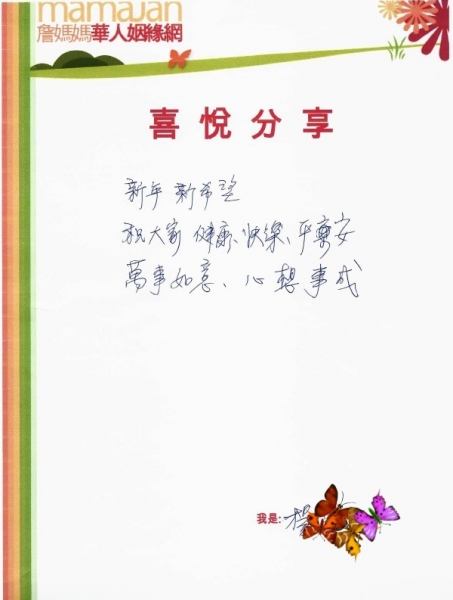 mamaJan
詹媽媽華人姻緣網
喜悅分享
新年新希望
祝大家健康、快樂、平安
萬事如意、心想事成
我是: